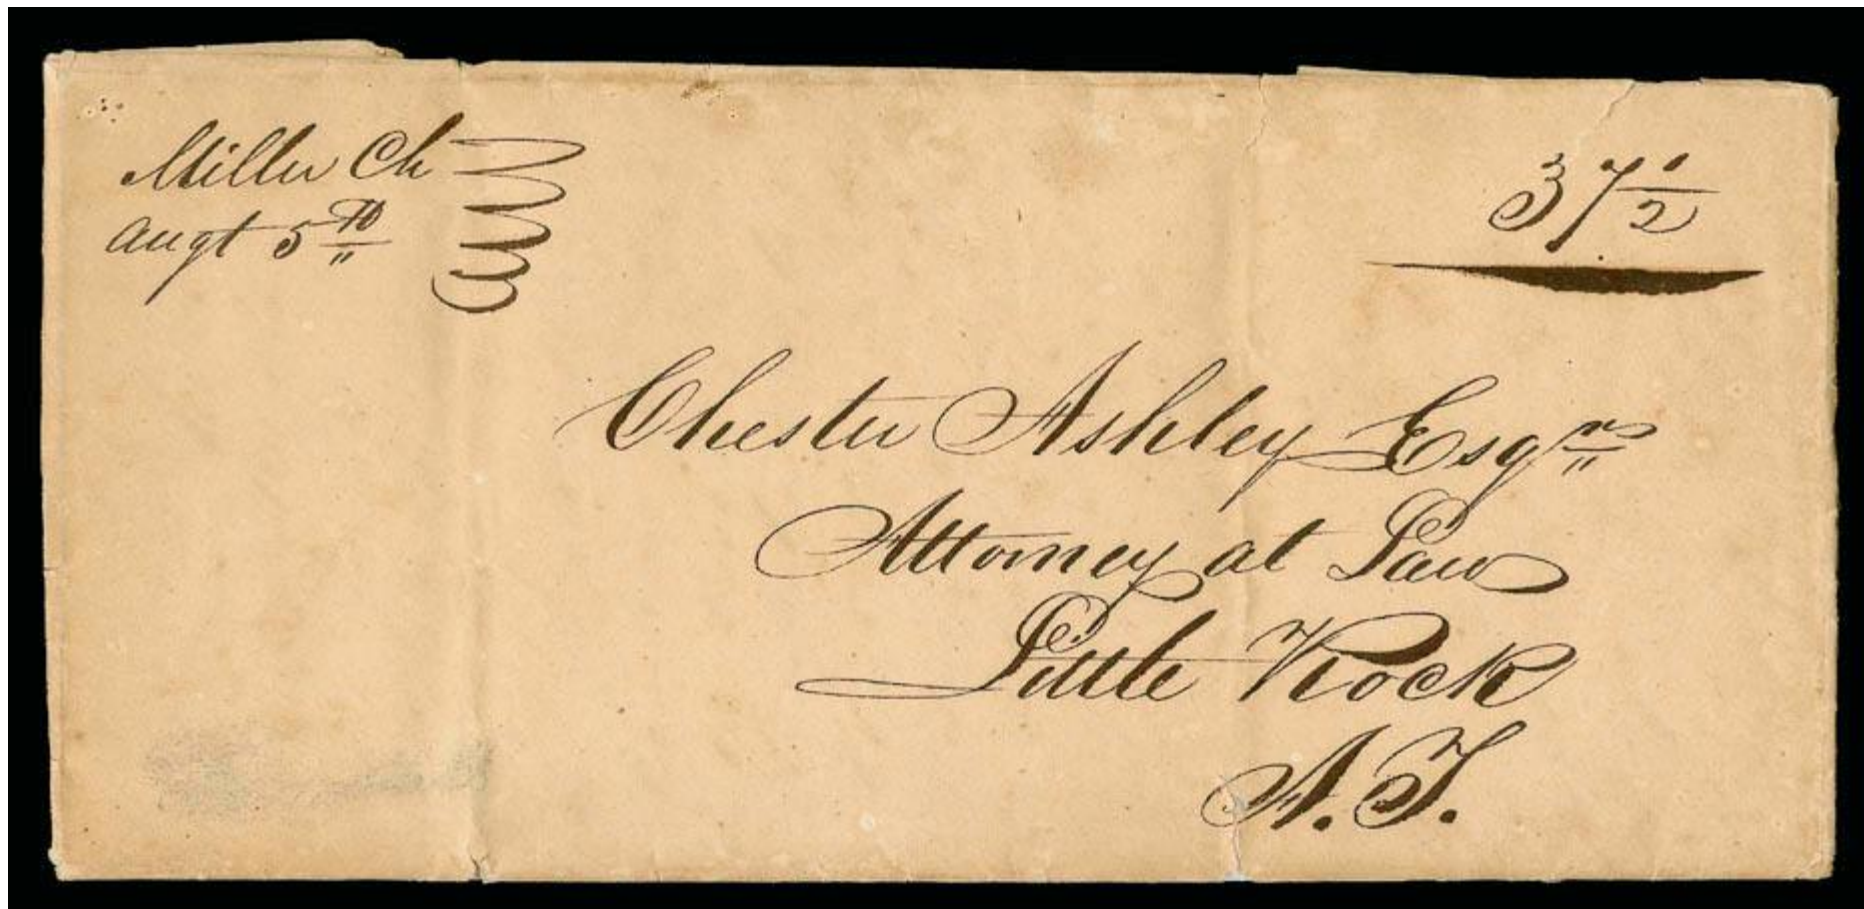 Miller Ch
Augt 5th
37 1/2
Chester Ashley Esqr
Attorney at Law
Little Rock
A.T.